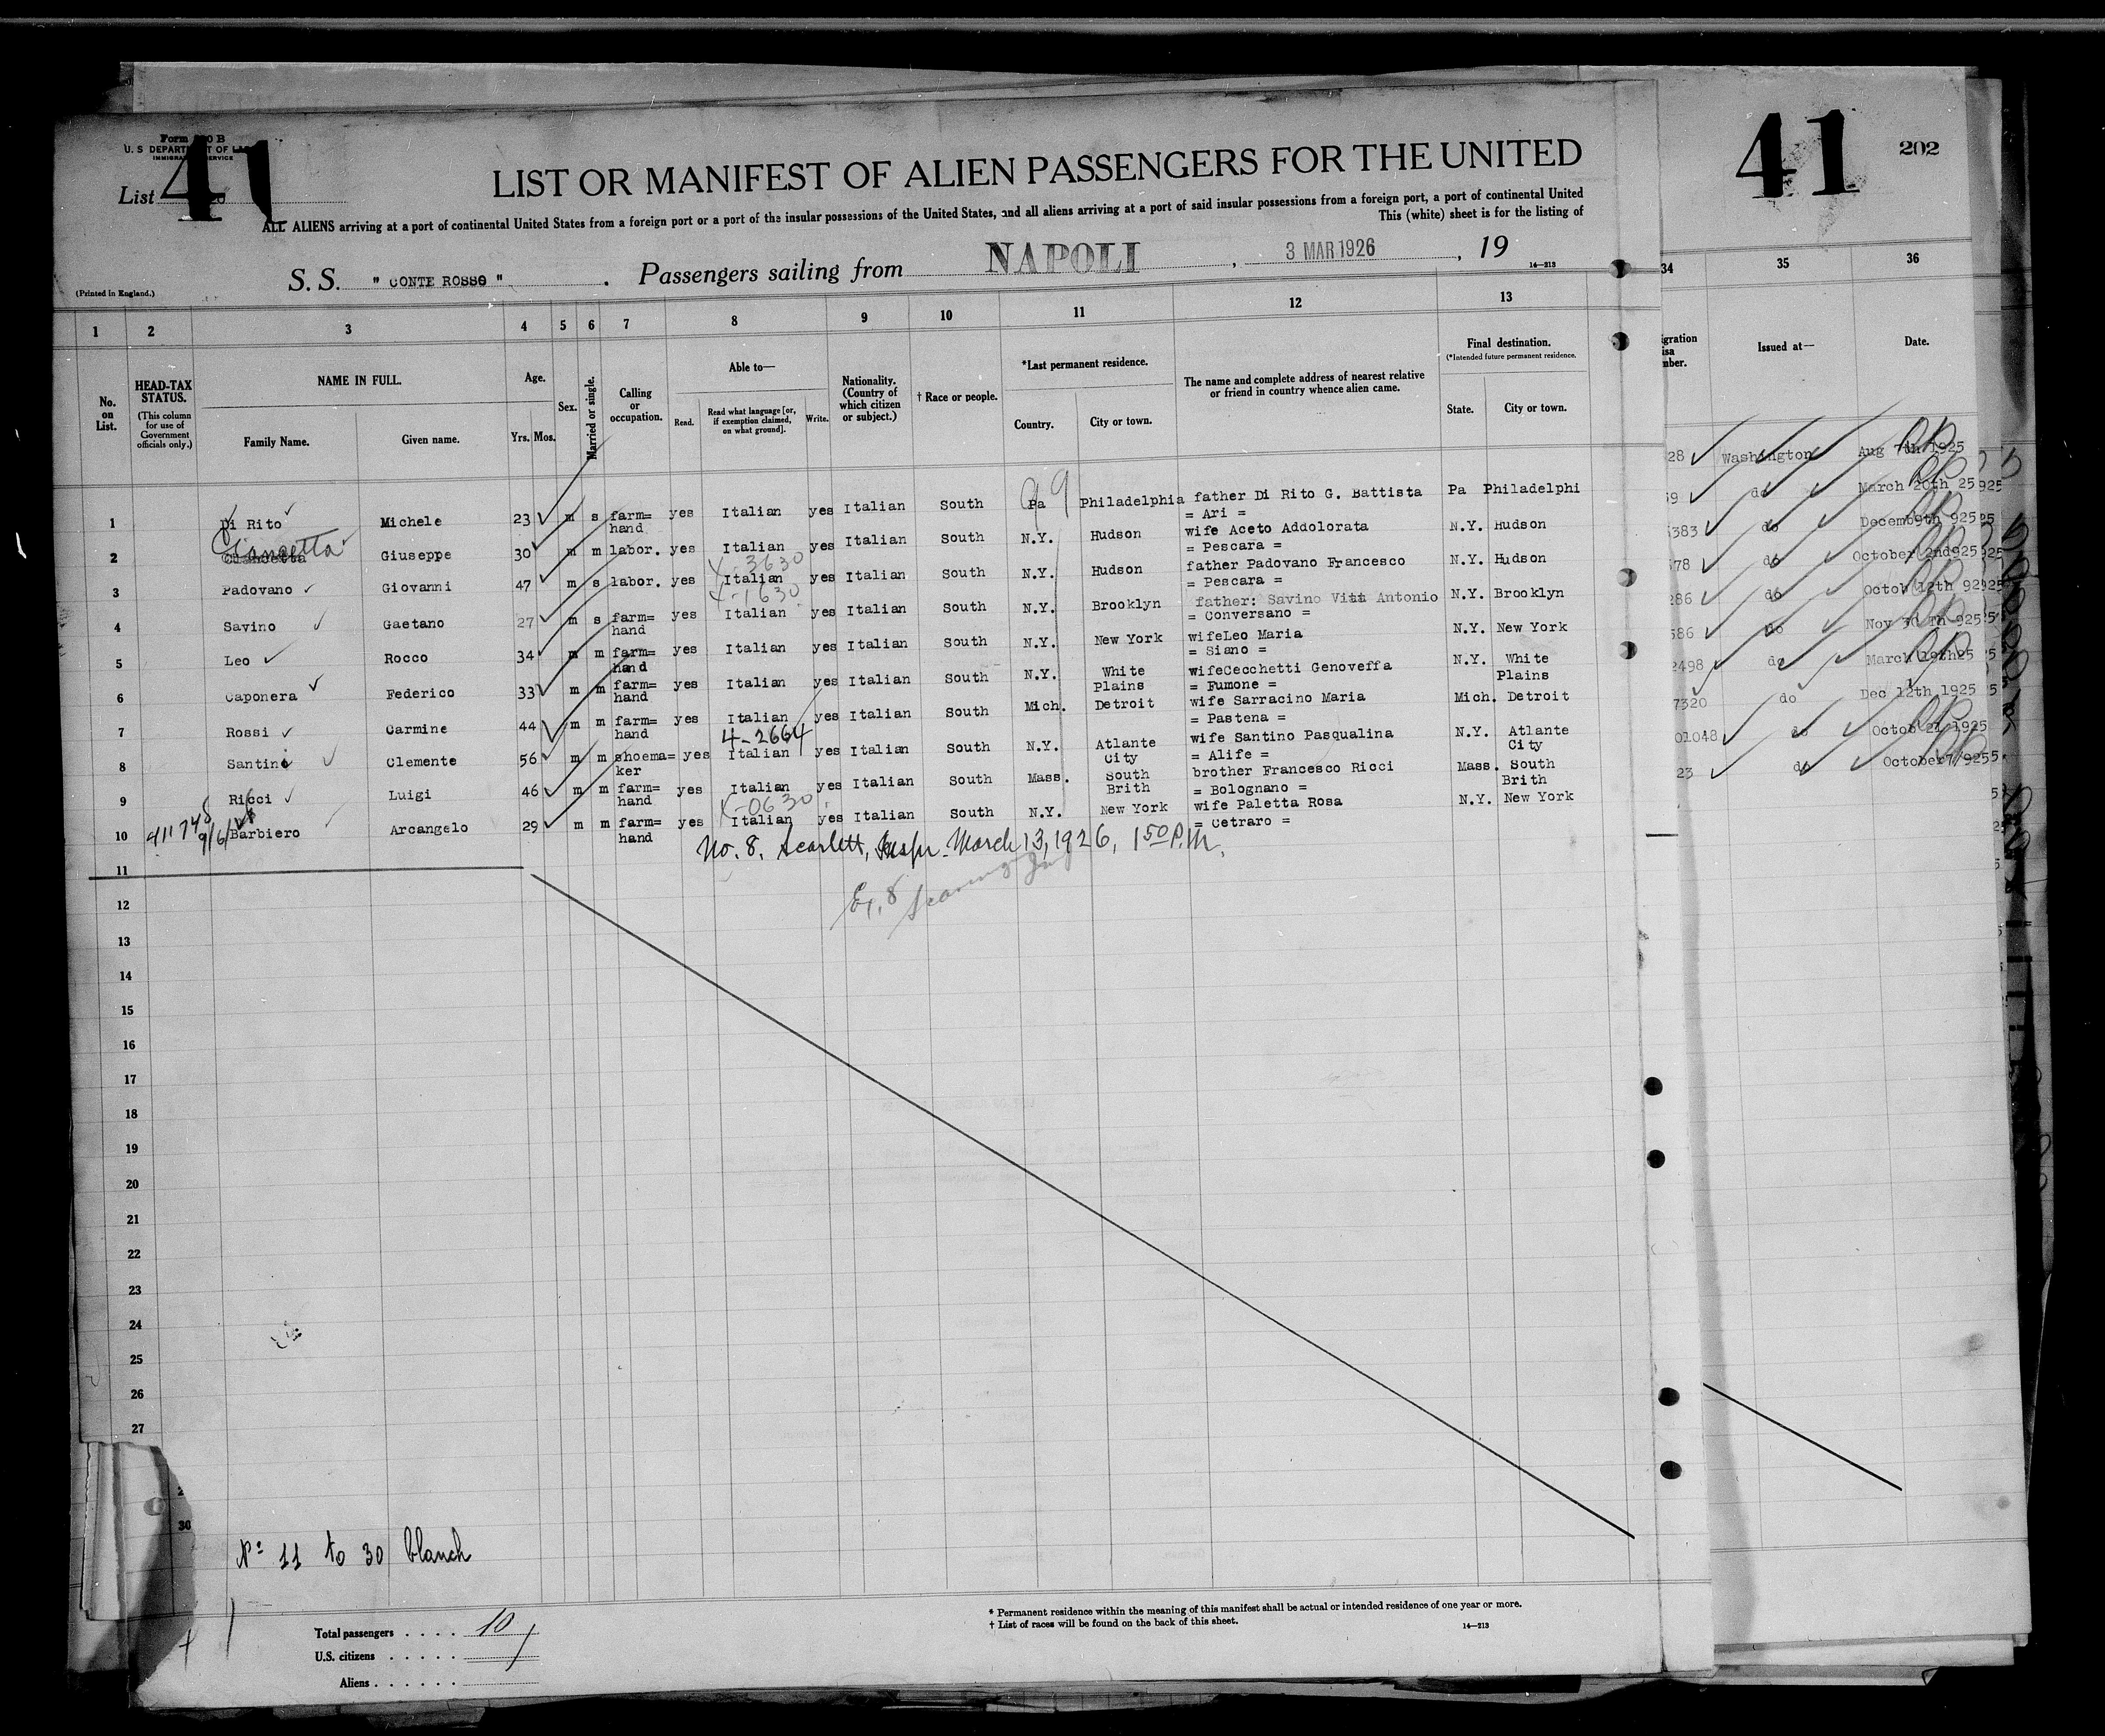 Form 500 B
U. S DEPARTMENT OF LABOR
IMMIGRATION SERVICE
List 41
LIST OR MANIFEST OF ALIEN PASSENGERS FOR THE UNITED
ALL ALIENS arriving at a port of continental United States from a foreign port or a port of the insular possessions of the United States, and all aliens arriving at a port of said insular possessions from a foreign port, a port of continental United
This (white) sheet is for the listing of
S. S. " CONTE ROSSO " . Passengers sailing from NAPOLI , 3 MAR 1926 , 19
14—213
(Printed in England.)
41 202
1 2 3 4 5 6 7 8 9 10 11 12 13 34 35 36
No. on List.
HEAD-TAX STATUS.
(This column for use of Government officials only.)
NAME IN FULL.
Family Name. Given name.
Age.
Yrs. Mos.
Sex.
Married or single.
Calling or occupation.
Able to—
Read. Read what language [or, if exemption claimed, on what ground]. Write.
Nationality. (Country of which citizen or subject.)
† Race or people.
*Last permanent residence.
Country. City or town.
The name and complete address of nearest relative or friend in country whence alien came.
Final destination.
(*Intended future permanent residence.
State. City or town.
Issued at—
Date.
1 Di Rito Michele 23 m s farm= hand yes Italian yes Italian South Pa Philadelphia father Di Rito G. Battista = Ari = Pa Philadelphi 28 Washington Aug 7th 1925
2 Ciancetta Giuseppe 30 m m labor. yes Italian yes Italian South N.Y. Hudson wife Aceto Addolorata = Pescara = N.Y. Hudson 59 do March 20th 25
4-3630
3 Padovano Giovanni 47 m s labor. yes Italian yes Italian South N.Y. Hudson father Padovano Francesco = Pescara = N.Y. Hudson 383 do Decem9th 925
4-1630
4 Savino Gaetano 27 m s farm= hand yes Italian yes Italian South N.Y. Brooklyn father: Savino Vita Antonio = Conversano = N.Y. Brooklyn 78 do October 2nd925
5 Leo Rocco 34 m m farm= hand yes Italian yes Italian South N.Y. New York wifeLeo Maria = Siano = N.Y. New York 286 do Octob 12th 925
6 Caponera Federico 33 m m farm= hand yes Italian yes Italian South N.Y. White Plains wifeCecchetti Genoveffa = Fumone = N.Y. White Plains 586 do Nov 30 Th 925
7 Rossi Carmine 44 m m farm= hand yes Italian yes Italian South Mich. Detroit wife Sarracino Maria = Pastena = Mich. Detroit 2498 do March 19th25
4-2664
8 Santini Clemente 56 m m shoema= ker yes Italian yes Italian South N.Y. Atlante City wife Santino Pasqualina = Alife = N.Y. Atlante City 7320 do Dec 12th 1925
9 Ricci Luigi 46 m m farm= hand yes Italian yes Italian South Mass. South Brith brother Francesco Ricci = Bolognano = Mass. South Brith 01048 do Octob 21 1925
X-0630
10 Barbiero Arcangelo 29 m m farm= hand yes Italian yes Italian South N.Y. New York wife Paletta Rosa = Cetraro = N.Y. New York 23 do October7/925
No. 8. Scarlett, Inspr. March 13, 1926, 1 50 P.M.
11
12
13
14
15
16
17
18
19
20
21
22
23
24
25
26
27
30
Nº 11 to 30 blanch
Total passengers . . . . 10
U.S. citizens . . . . .
Aliens . . . . . .
* Permanent residence within the meaning of this manifest shall be actual or intended residence of one year or more.
† List of races will be found on the back of this sheet.
14—213